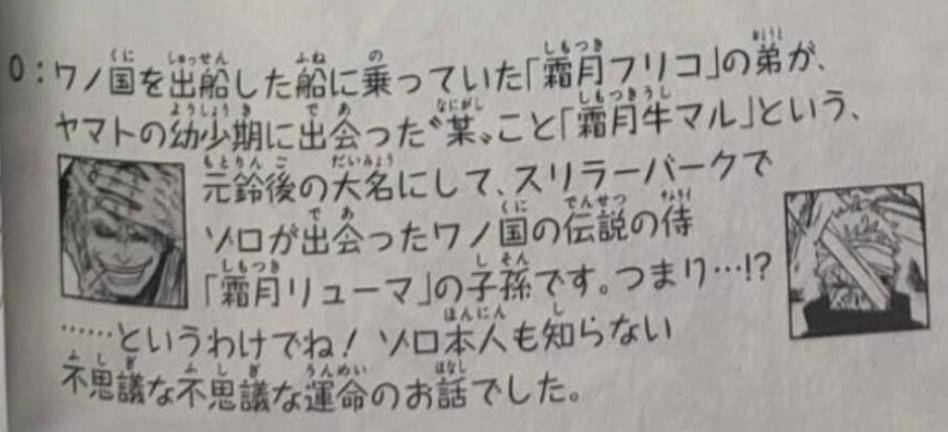 O:ワノ国を出船した船に乗っていた「霜月フリコ」の弟が、
ヤマトの幼少期に出会った〝某〟こと「霜月牛マル」という、
元鈴後の大名にして、スリラーバークで
ゾロが出会ったワノ国の伝説の侍
「霜月リューマ」の子孫です。つまり…!?
……というわけでね! ゾロ本人も知らない
不思議な不思議な運命のお話でした。